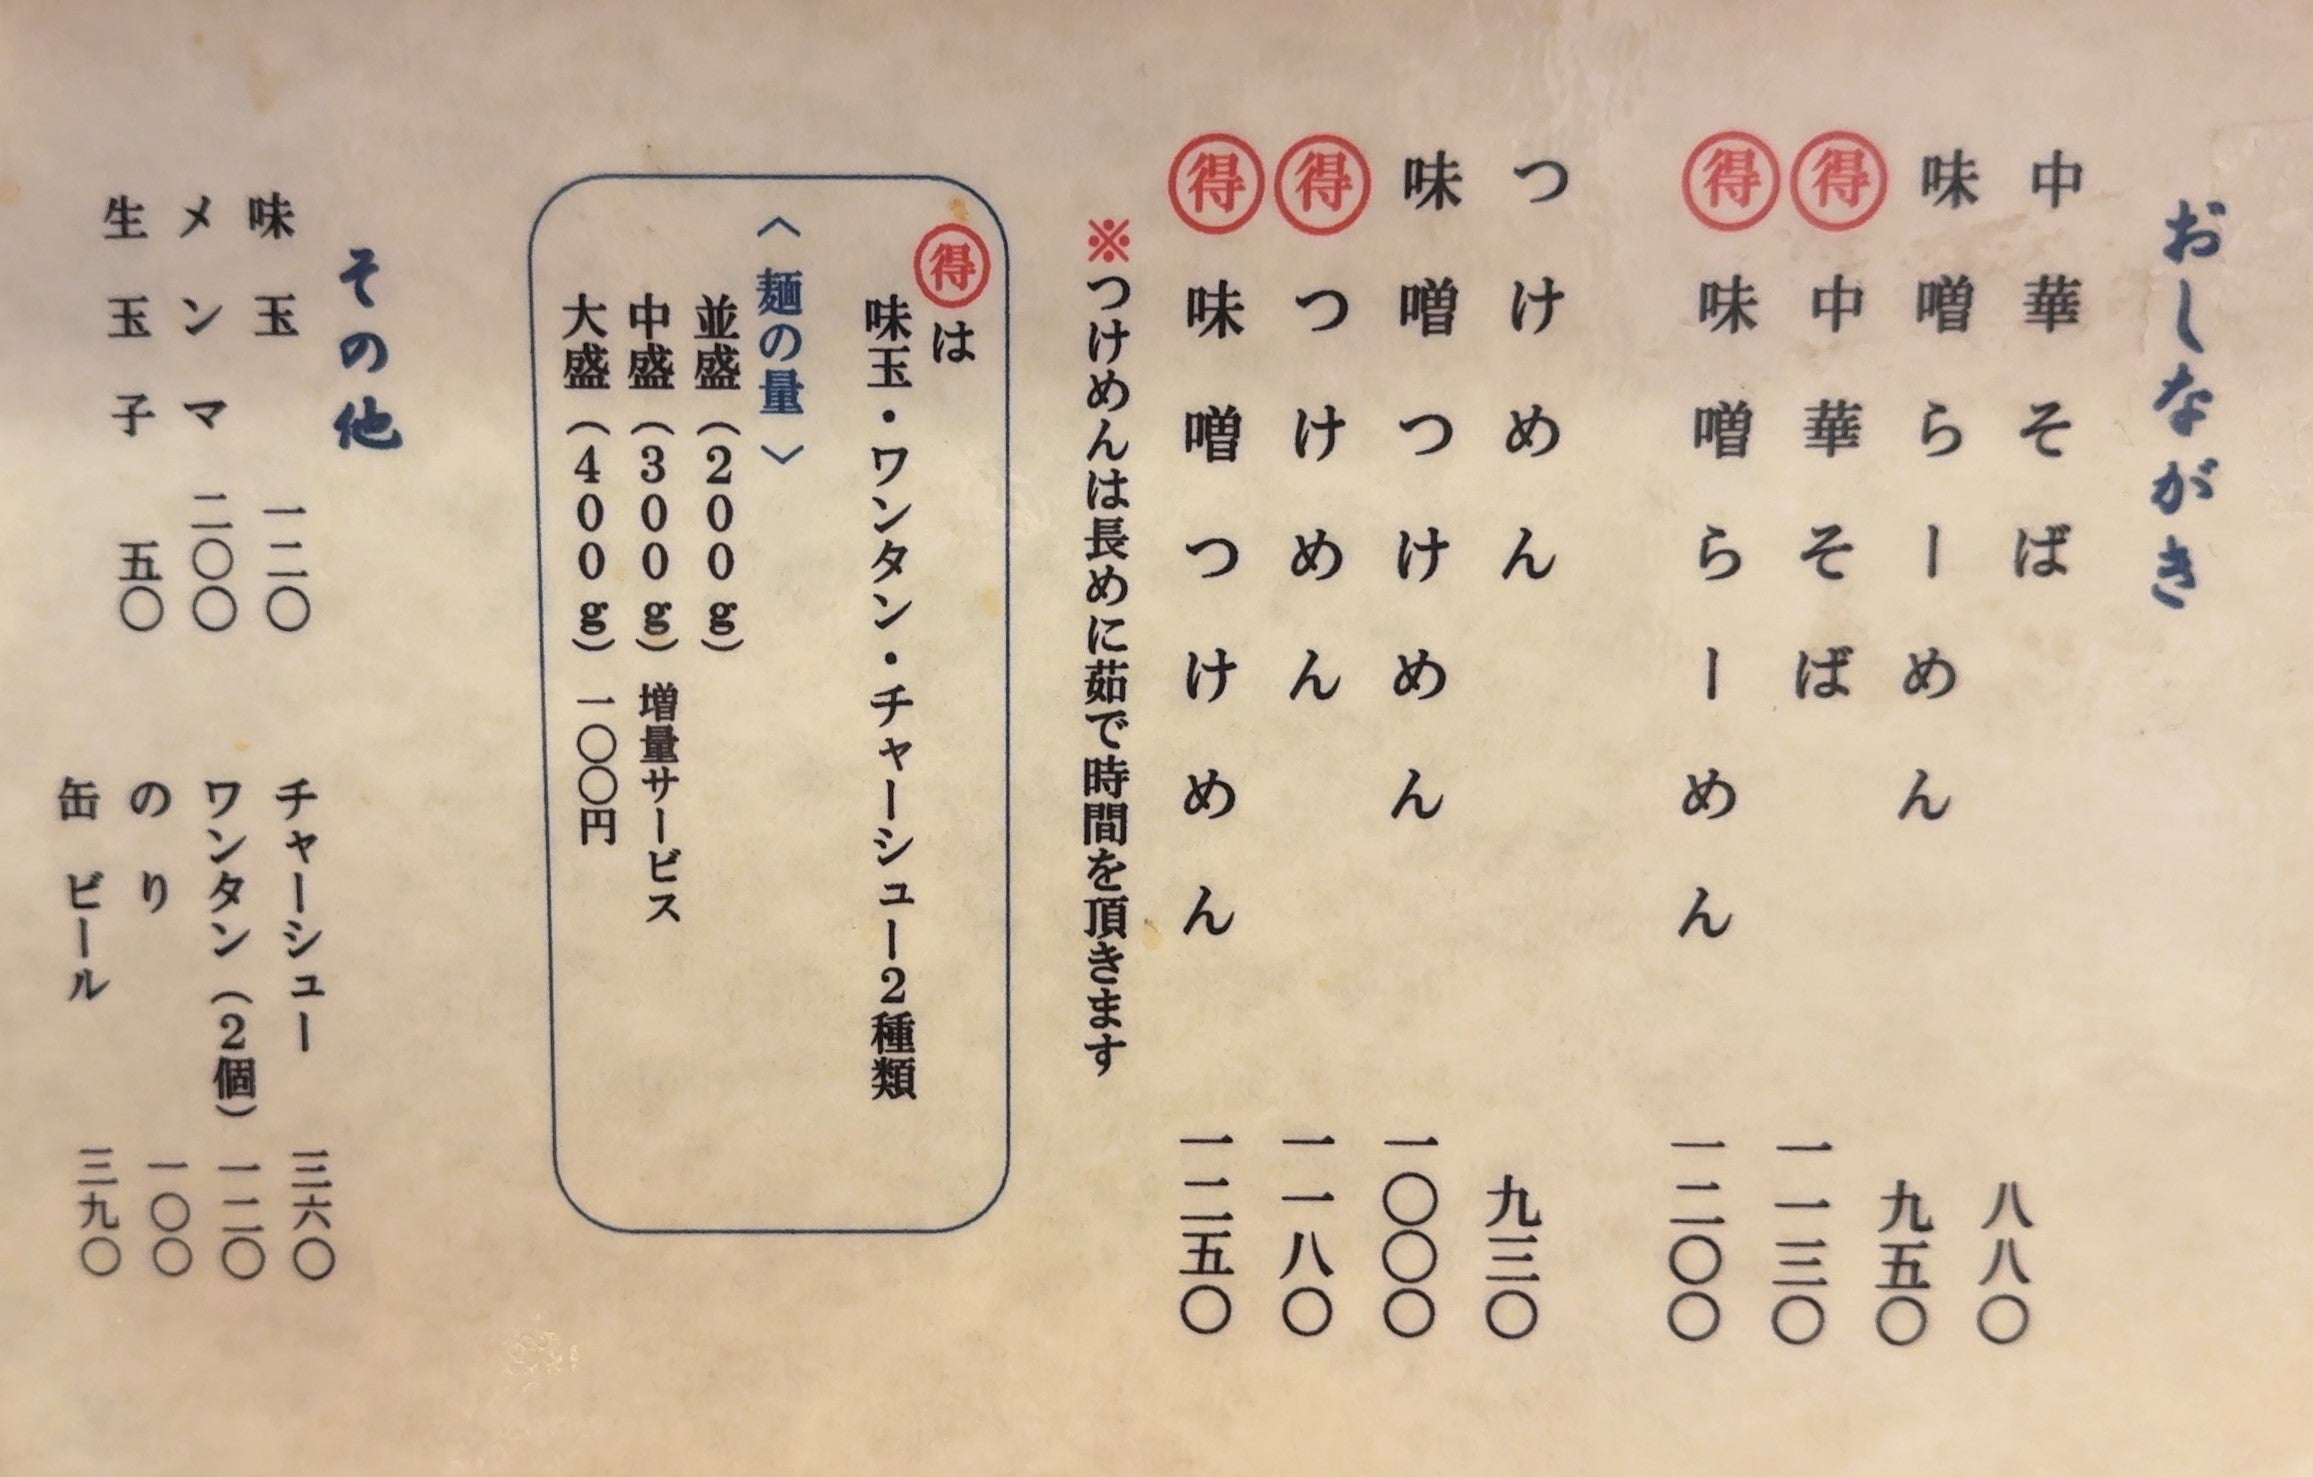 おしながき
中華そば 八八〇
味噌らーめん 九五〇
得 中華そば 一一三〇
得 味噌らーめん 一二〇〇
つけめん 九三〇
味噌つけめん 一〇〇〇
得 つけめん 一一八〇
得 味噌つけめん 一二五〇
※つけめんは長めに茹で時間を頂きます
得は
味玉・ワンタン・チャーシュー2種類
〈麺の量〉
並盛（200g）
中盛（300g）増量サービス
大盛（400g）一〇〇円
その他
味玉 一二〇
メンマ 二〇〇
生玉子 五〇
チャーシュー 三六〇
ワンタン（2個） 一二〇
のり 一〇〇
缶ビール 三九〇